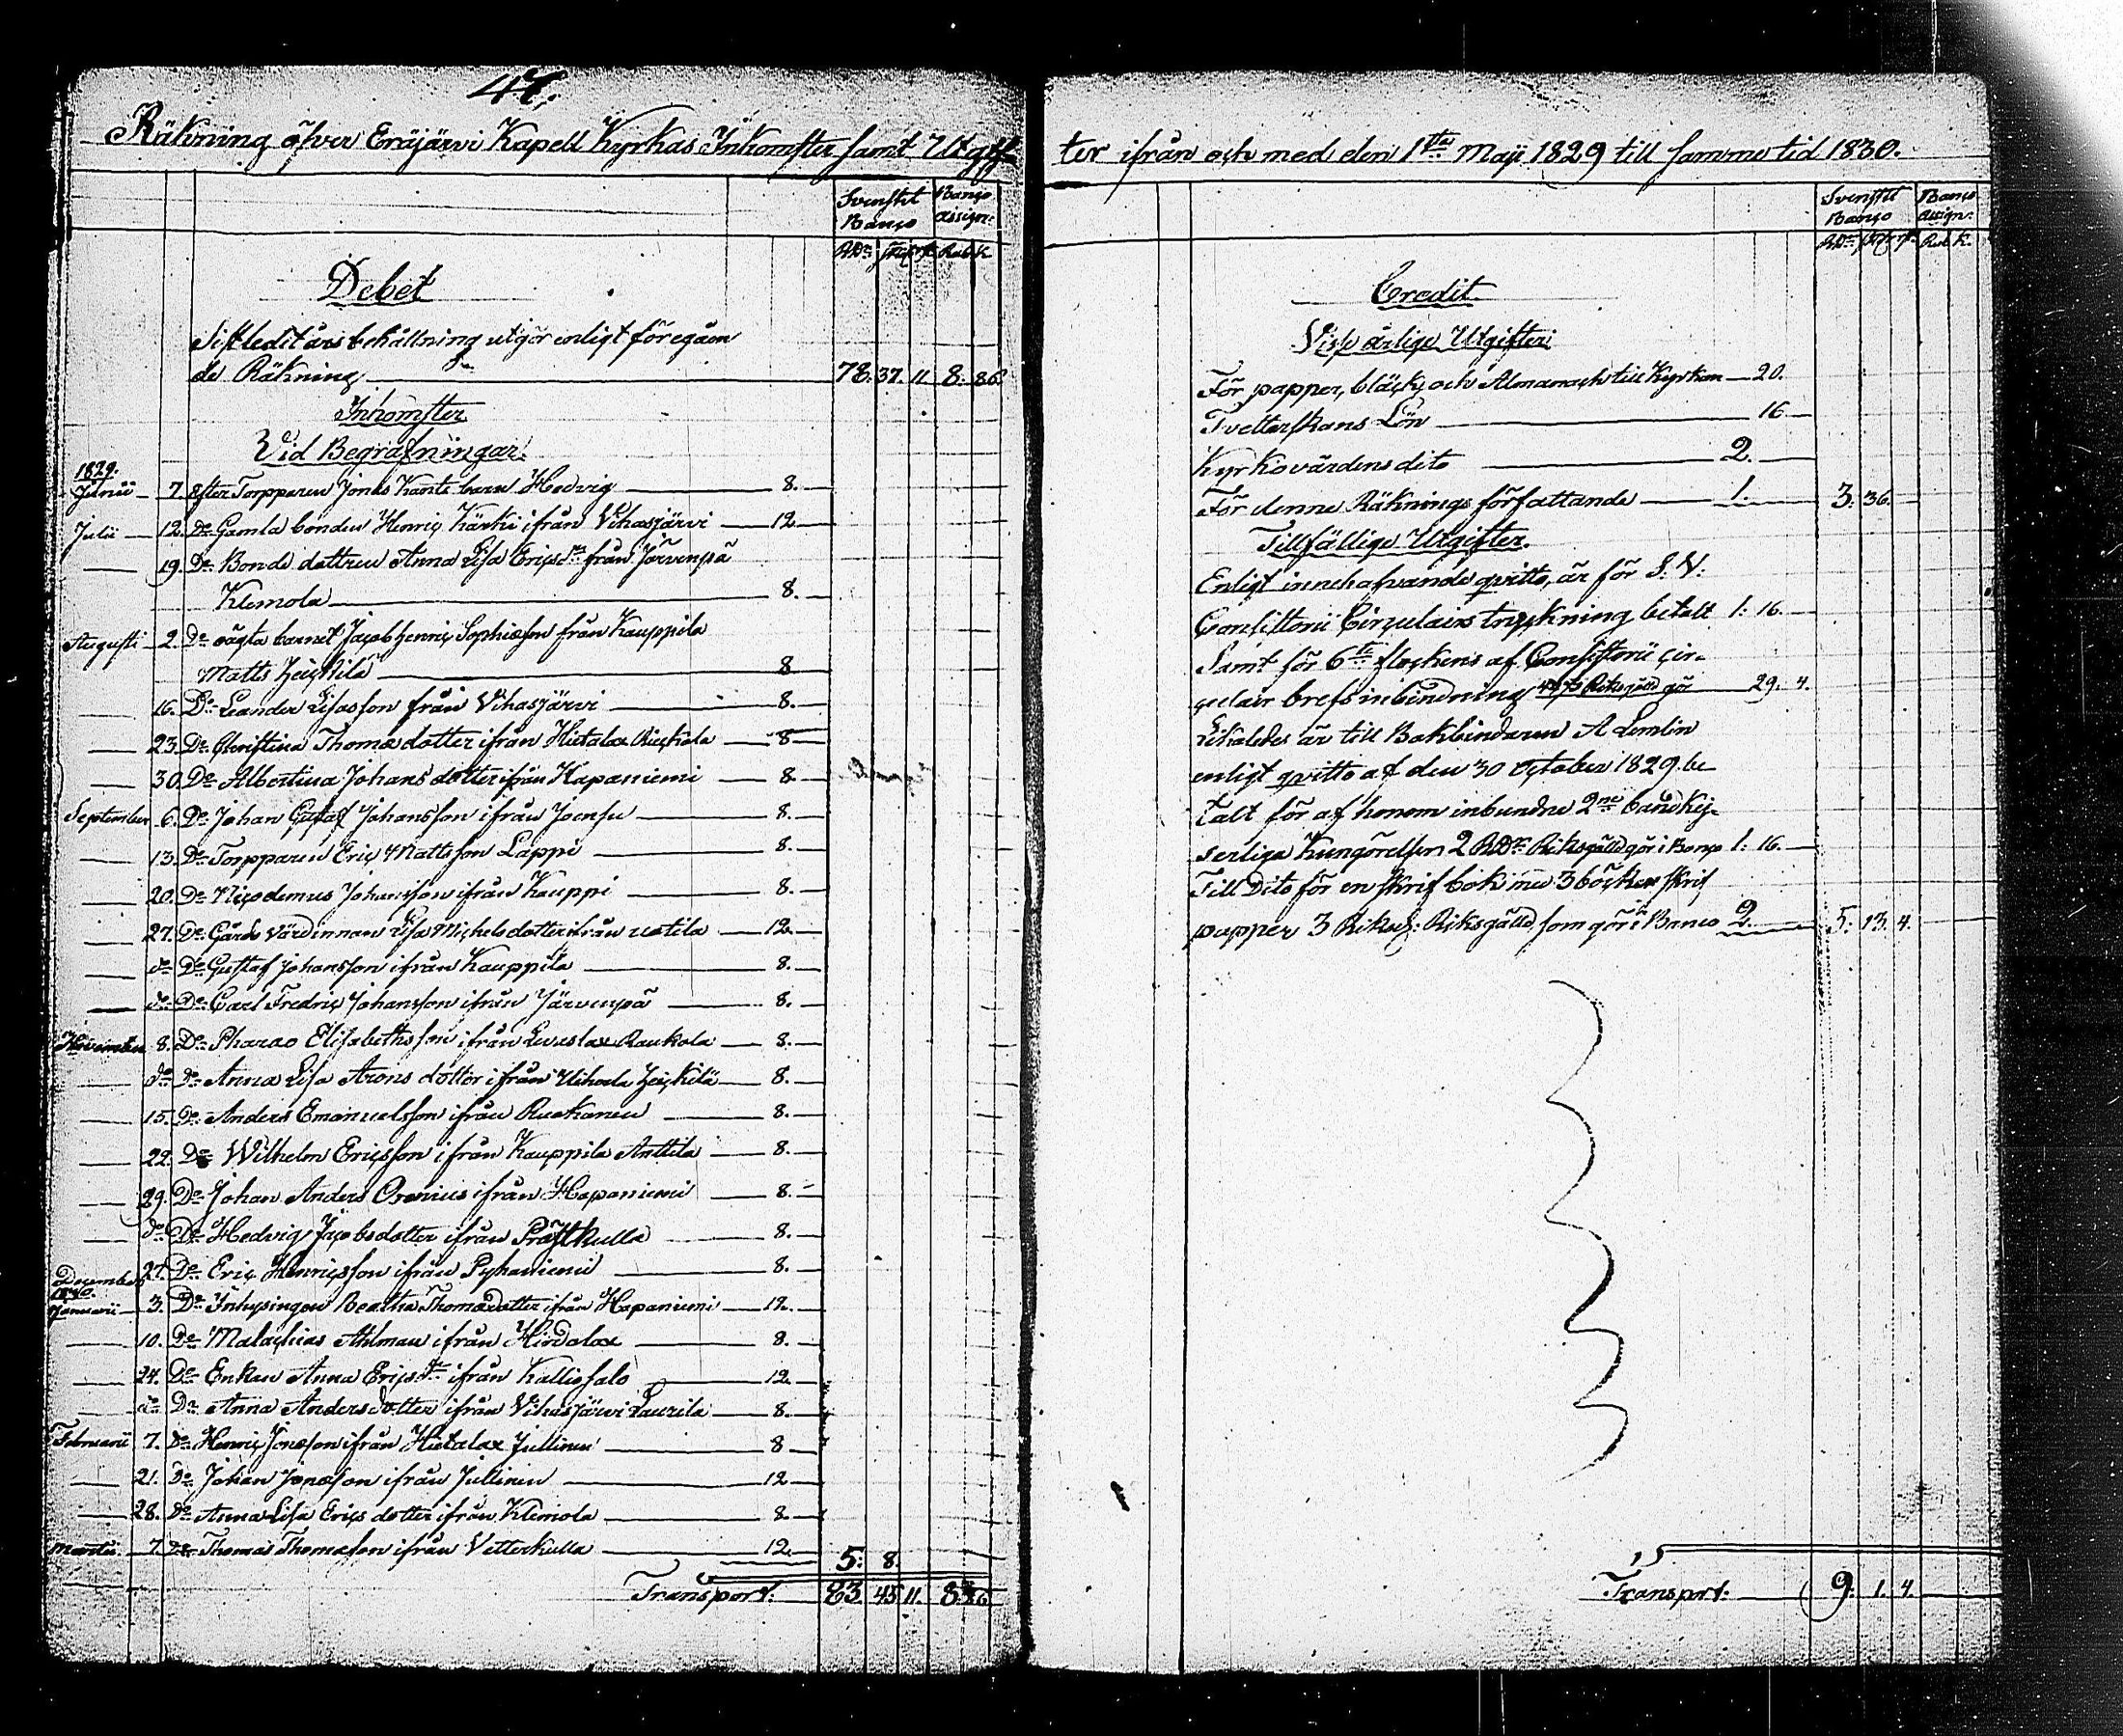 47.
Räkning öfver Eräjärvi Kapell Kyrkas Inkomster samt Utgif-
Svenskt Banco
Banco Assign:
RDr sk. r. Rub. K.
Debet
Sistledit års behållning utgör enligt föregåen
de Räkning 78. 37. 11. 8. 86.
Inkomster
Vid Begrafningar.
1829.
Junii 7. Efter Torpparen Jonas Kants barn Hedvig 8.
Julii 12. Do Gamla bonden Henric Kärki ifrån Vihasjärvi 12.
19. Do Bonde dottren Anna Lisa Ericsdr från Järvenpä
Klemola 8.
Augusti 2. Do oägta barnet Jacob Henric Sophiason från Kauppila
Matts Heickilä 8
16. Do Leander Lisasson från Vihasjärvi 8.
23. Do Christina Thomædotter ifrån Hietalax 8
30. Do Albertina Johans dotter ifrån Hapaniemi 8
September 6. Do Johan Gustaf Johansson ifrån Joensu 8.
13. Do Torpparen Eric Mattsson Lappi 8.
20. Do Nicodemus Johansson ifrån Kauppi 8.
27. Do Gårds värdinnan Lisa Michelsdotter ifrån Uotila 12.
do Do Gustaf Johansson ifrån Kauppila 8.
do Do Carl Fredric Johansson ifrån Järvenpä 8.
November 8. Do Pharao Elisabethsson ifrån Levaslax Raukola 8.
do Do Anna Lisa Arons dotter ifrån Uihola Heickilä 8.
15. Do Anders Emanuelsson ifrån Ruokanen 8.
22. Do Wilhelm Ericsson ifrån Kauppila Anttila 8.
29. Do Johan Anders Orenius ifrån Hapaniemi 8.
do Do Hedvig Jacobsdotter ifrån Prästkulla 8.
December 27. Do Eric Henricsson ifrån Pyhäniemi 8.
1830.
Januarii 3. Do Inhysingen Beatha Thomædotter ifrån Hapaniemi 12.
10. Do Malachias Ahlman ifrån Hirdalax 8.
24. Do Enkan Anna Ericsdr ifrån Kalliosalo 12.
do Do Anna Andersdotter ifrån Vihasjärvi Laurila 8.
Februarii 7. Do Henric Jonæson ifrån Hietalax Jullinen 8
21. Do Johan Jonæson ifrån Jullinen 12
28. Do Anna Lisa Erics dotter ifrån Klemola 8.
Martii 7. Do Thomas Thomæson ifrån Vetterkulla 12. 5: 8.
Transport: 83. 45. 11. 8. 86.
ter ifrån och med den 1sta Maji 1829 till samma tid 1830.
Svenskt Banco
Banco Assign:
RDr sk. r. Rub. K.
Credit
Visse årlige Utgifter
För papper, bläck, och Almanach till Kyrkan 20.
Tvetterskans Lön 16
Kyrkiovärdens dito 2.
För denne Räknings författande 1. 3. 36.
Tillfällige Utgifter.
Enligt innehafvande qvitto, är för S. V.
Consistorii Circulairs tryckning betalt 1: 16.
Samt för 6te flockens af Consistorii cir-
culair brefs inbindning Riksgäld gör 29. 4.
Likaledes är till Bokbindaren A Lemlin
enligt qvitto af den 30 October 1829 be
talt för af honom inbundne 2ne band Kej-
serliga Kungörelser 2 RDr Riksgäld gör i Banco 1: 16.
Till Dito för en skrif bok med 3 böcker skrif
papper 3 Riksd: Riksgälld som gör i Banco 2. 5: 13. 4.
Transport: 9. 1. 4.